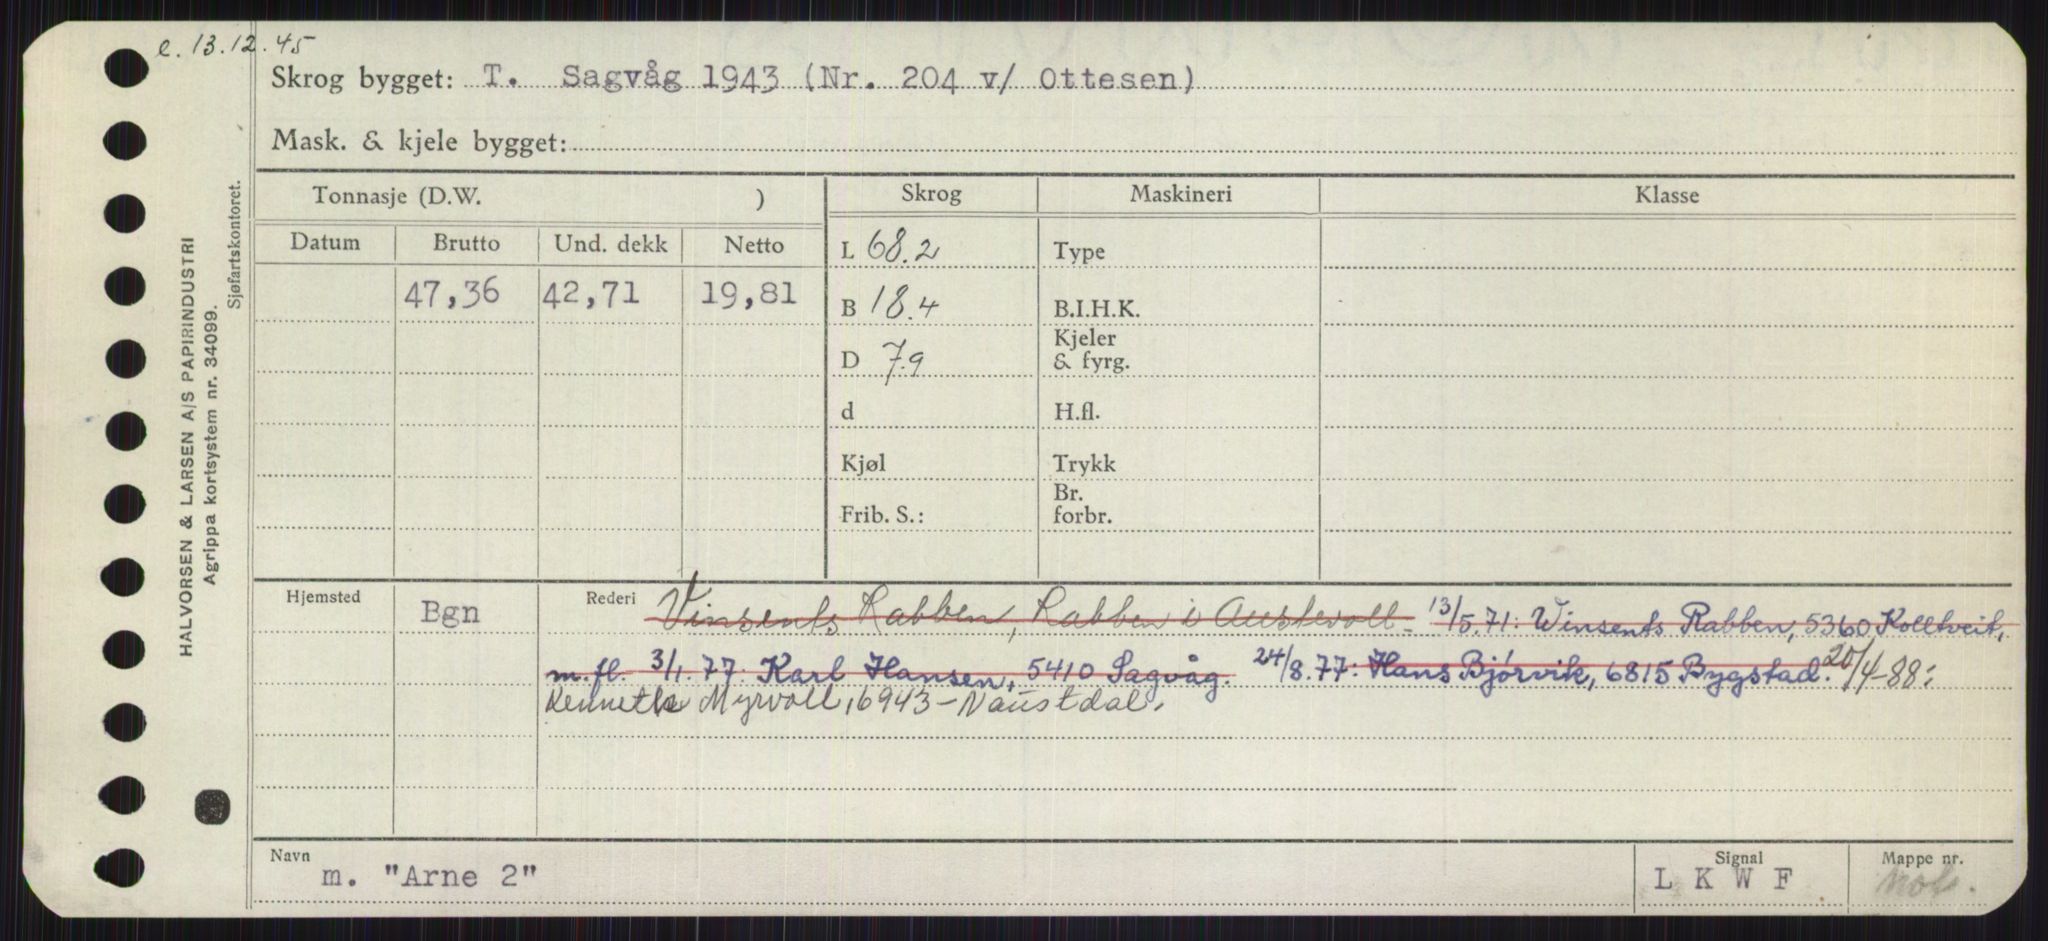 e. 13.12.45
Skrog bygget: T. Sagvåg 1943 (Nr. 204 v/ Ottesen)
Mask. & kjele bygget:
HALVORSEN & LARSEN A/S PAPIRINDUSTRI
Agrippa kortsystem nr. 34099.
Sjøfartskontoret.
Tonnasje (D.W. ) Skrog Maskineri Klasse
Datum Brutto Und. dekk Netto
L 68.2 Type
47,36 42,71 19,81
B 18.4 B.I.H.K.
D 7.9 Kjeler & fyrg.
d H.fl.
Kjøl Trykk
Frib. S.: Br. forbr.
Hjemsted Bgn Rederi Vinsents Rabben, Rabben i Austevoll. 13/5.71: Winsents Rabben, 5360 Kolltveit,
m.fl. 3/1.77: Karl Hansen, 5410 Sagvåg. 24/8.77: Hans Bjørvik, 6815 Bygstad. 20/4-88:
Kenneth Myrvoll, 6943 - Naustdal.
Navn m. "Arne 2" Signal L K W F Mappe nr.